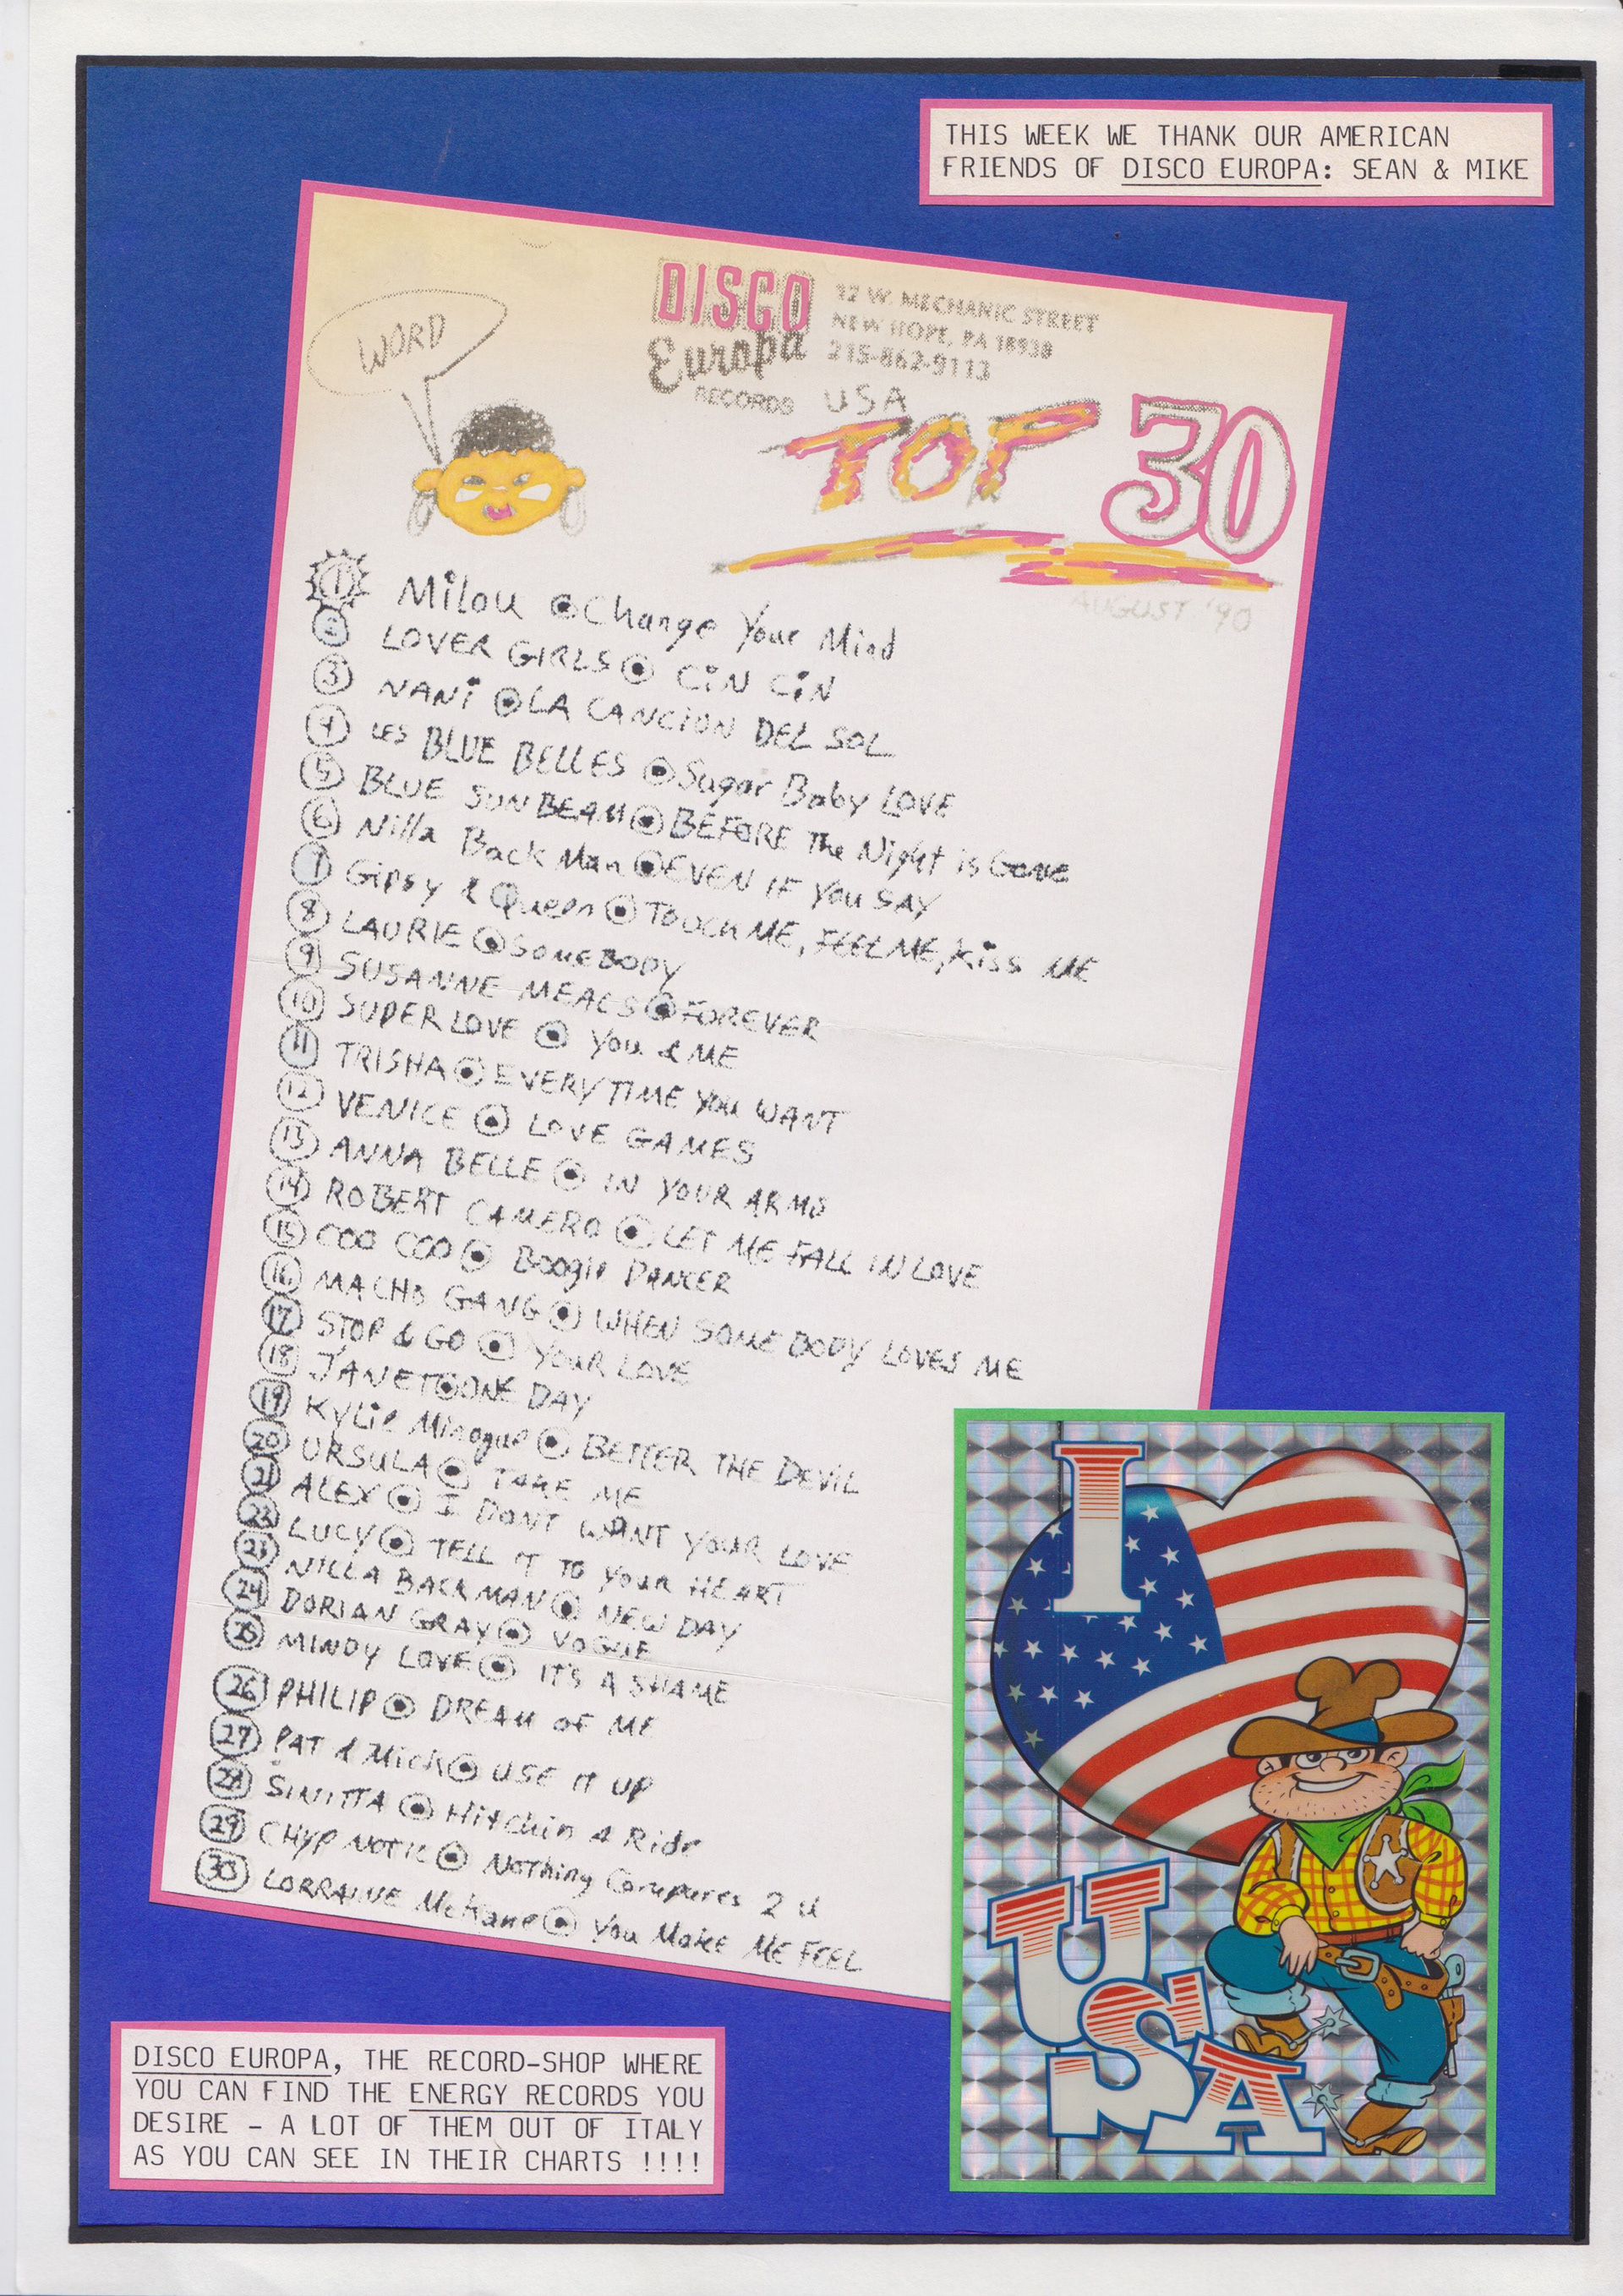 THIS WEEK WE THANK OUR AMERICAN
FRIENDS OF DISCO EUROPA: SEAN & MIKE
WORD
DISCO
Europa
RECORDS
32 W. MECHANIC STREET
NEW HOPE, PA 18938
215-862-9113
USA
TOP 30
AUGUST '90
1 Milou Change Your Mind
2 LOVER GIRLS CiN CiN
3 NANi LA CANCION DEL SOL
4 LES BLUE BELLES Sugar Baby LOVE
5 BLUE SUNBEAM BEFORE The Night is Gone
6 Nilla Back Man EVEN IF YOU SAY
7 Gipsy & Queen TOUCH ME, FEEL ME, Kiss ME
8 LAURIE SOMEBODY
9 SUSANNE MEALS FOREVER
10 SUPER LOVE You & ME
11 TRISHA EVERYTIME YOU WANT
12 VENICE LOVE GAMES
13 ANNA BELLE IN YOUR ARMS
14 ROBERT CAMERO LET ME FALL IN LOVE
15 COO COO Boogie DANCER
16 MACHO GANG WHEN SOMEBODY LOVES ME
17 STOP & GO YOUR LOVE
18 JANET ONE DAY
19 Kylie Minogue BETTER THE DEVIL
20 URSULA TAKE ME
21 ALEX I DONT WANT YOUR LOVE
22 LUCY TELL IT TO YOUR HEART
23 NILLA BACK MAN NEW DAY
24 DORIAN GRAY VOGUE
25 MINDY LOVE IT'S A SHAME
26 PHILIP DREAM OF ME
27 PAT & Mick USE IT UP
28 SINITTA Hitchin A Ride
29 CHYP NOTIC Nothing Compares 2 U
30 LORRAINE McKane You Make ME FEEL
I
USA
DISCO EUROPA, THE RECORD-SHOP WHERE
YOU CAN FIND THE ENERGY RECORDS YOU
DESIRE - A LOT OF THEM OUT OF ITALY
AS YOU CAN SEE IN THEIR CHARTS !!!!